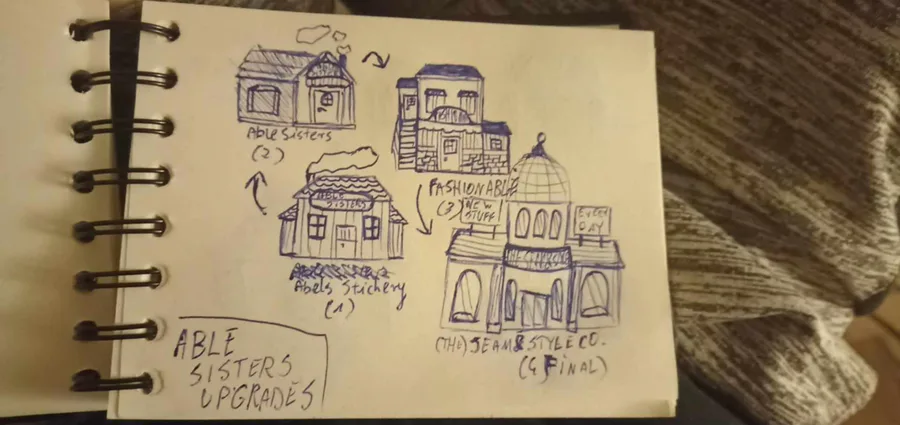 Able Sisters
(2)
FASHIONABLE
(3)
NEW
STUFF
EVERY
DAY
ABLE
SISTERS
Abels Stichery
(1)
(THE) SEAM & STYLE CO.
(4 FINAL)
ABLE
SISTERS
UPGRADES